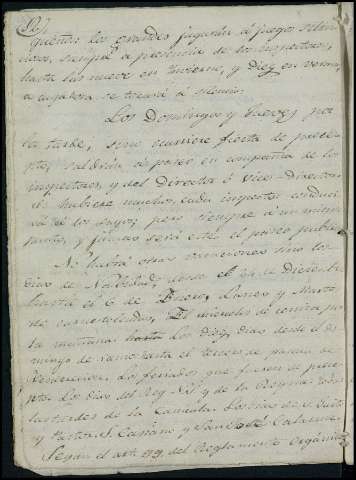 queños los grandes jugarán á juegos silen-
ciosos, siempre a presencia de los inspectores,
hasta las nueve en Invierno, y Diez en verano,
a cuya hora se tocará á silencio.
Los Domingos y Jueves por
la tarde, si no ocurriere fiesta de precep-
to, saldrán á paseo en compañia de los
inspectores, y del Director ó Vice-Director.
Si hubiere muchos, cada inspector conduci-
rá á los suyos; pero siempre á un mismo
punto, y jamas será este el paseo publico.
No habrá otras vacaciones sino los
dias de Navidad, desde el de Diciembre
hasta el 6 de Enero, Lunes y Martes
de carnestolendas, El miercoles de ceniza por
la mañana, los Diez dias desde el do-
mingo de ramos hasta el tercero de pascua de
Resurreccion, Los feriados que fueren de precep-
to. Los dias del Rey N.S. y de la Reyna. Todas
las tardes de la Canicula. Los dias de S. Justo
y Pastor, S. Casiano y San José de Calasanz.
Segun el art. 119 del Reglamento Organico